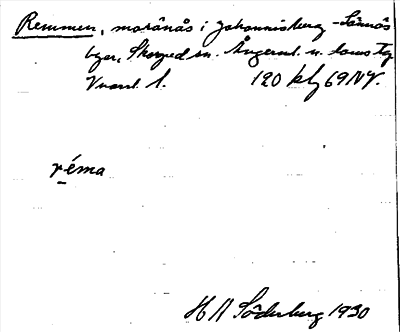 Remmen, moränås i Johannisberg-Lännäs
byar, Skorped sn. Ångerml. n. lands tg
Vnorrl. l. 120 kbl 69 NV.
réma
H A Söderberg 1930